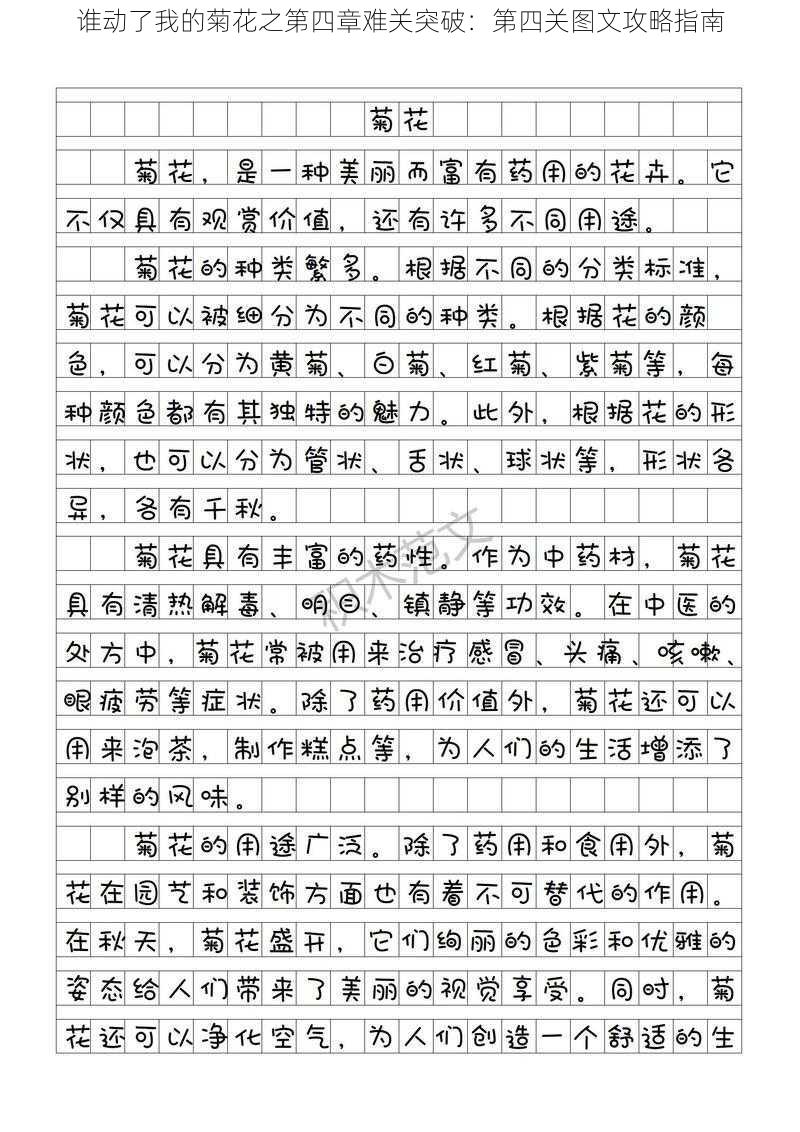 谁动了我的菊花之第四章难关突破：第四关图文攻略指南
菊花
菊花，是一种美丽而富有药用的花卉。它
不仅具有观赏价值，还有许多不同用途。
菊花的种类繁多。根据不同的分类标准，
菊花可以被细分为不同的种类。根据花的颜
色，可以分为黄菊、白菊、红菊、紫菊等，每
种颜色都有其独特的魅力。此外，根据花的形
状，也可以分为管状、舌状、球状等，形状各
异，各有千秋。
菊花具有丰富的药性。作为中药材，菊花
具有清热解毒、明目、镇静等功效。在中医的
处方中，菊花常被用来治疗感冒、头痛、咳嗽、
眼疲劳等症状。除了药用价值外，菊花还可以
用来泡茶，制作糕点等，为人们的生活增添了
别样的风味。
菊花的用途广泛。除了药用和食用外，菊
花在园艺和装饰方面也有着不可替代的作用。
在秋天，菊花盛开，它们绚丽的色彩和优雅的
姿态给人们带来了美丽的视觉享受。同时，菊
花还可以净化空气，为人们创造一个舒适的生
积木范文